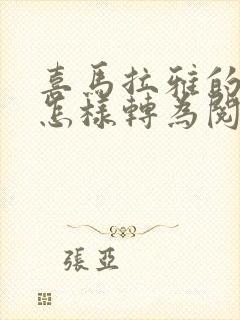 喜馬拉雅的
怎樣轉為閱
張亞